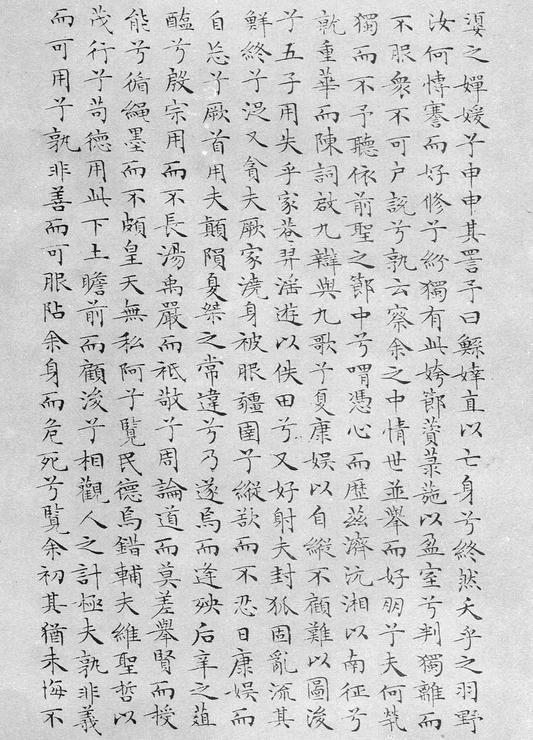 媭之嬋媛兮申申其詈予曰鯀婞直以亡身兮終然夭乎之羽野
汝何博謇而好修兮紛獨有此姱節薋菉葹以盈室兮判獨離而
不服衆不可户說兮孰云察余之中情世並舉而好朋兮夫何煢
獨而不予聽依前聖之節中兮喟憑心而歷兹濟沅湘以南征兮
就重華而陳詞啟九辯與九歌兮夏康娛以自縱不顧難以圖後
兮五子用失乎家巷羿淫遊以佚田兮又好射夫封狐固亂流其
鮮終兮浞又貪夫厥家澆身被服疆圉兮縱欲而不忍日康娛而
自忘兮厥首用夫顛隕夏桀之常違兮乃遂焉而逢殃后辛之菹
醢兮殷宗用而不長湯禹嚴而祗敬兮周論道而莫差舉賢而授
能兮循繩墨而不頗皇天無私阿兮覽民德焉錯輔夫維聖哲以
茂行兮苟德用此下土瞻前而顧後兮相觀人之計極夫孰非義
而可用兮孰非善而可服阽余身而危死兮覽余初其猶未悔不